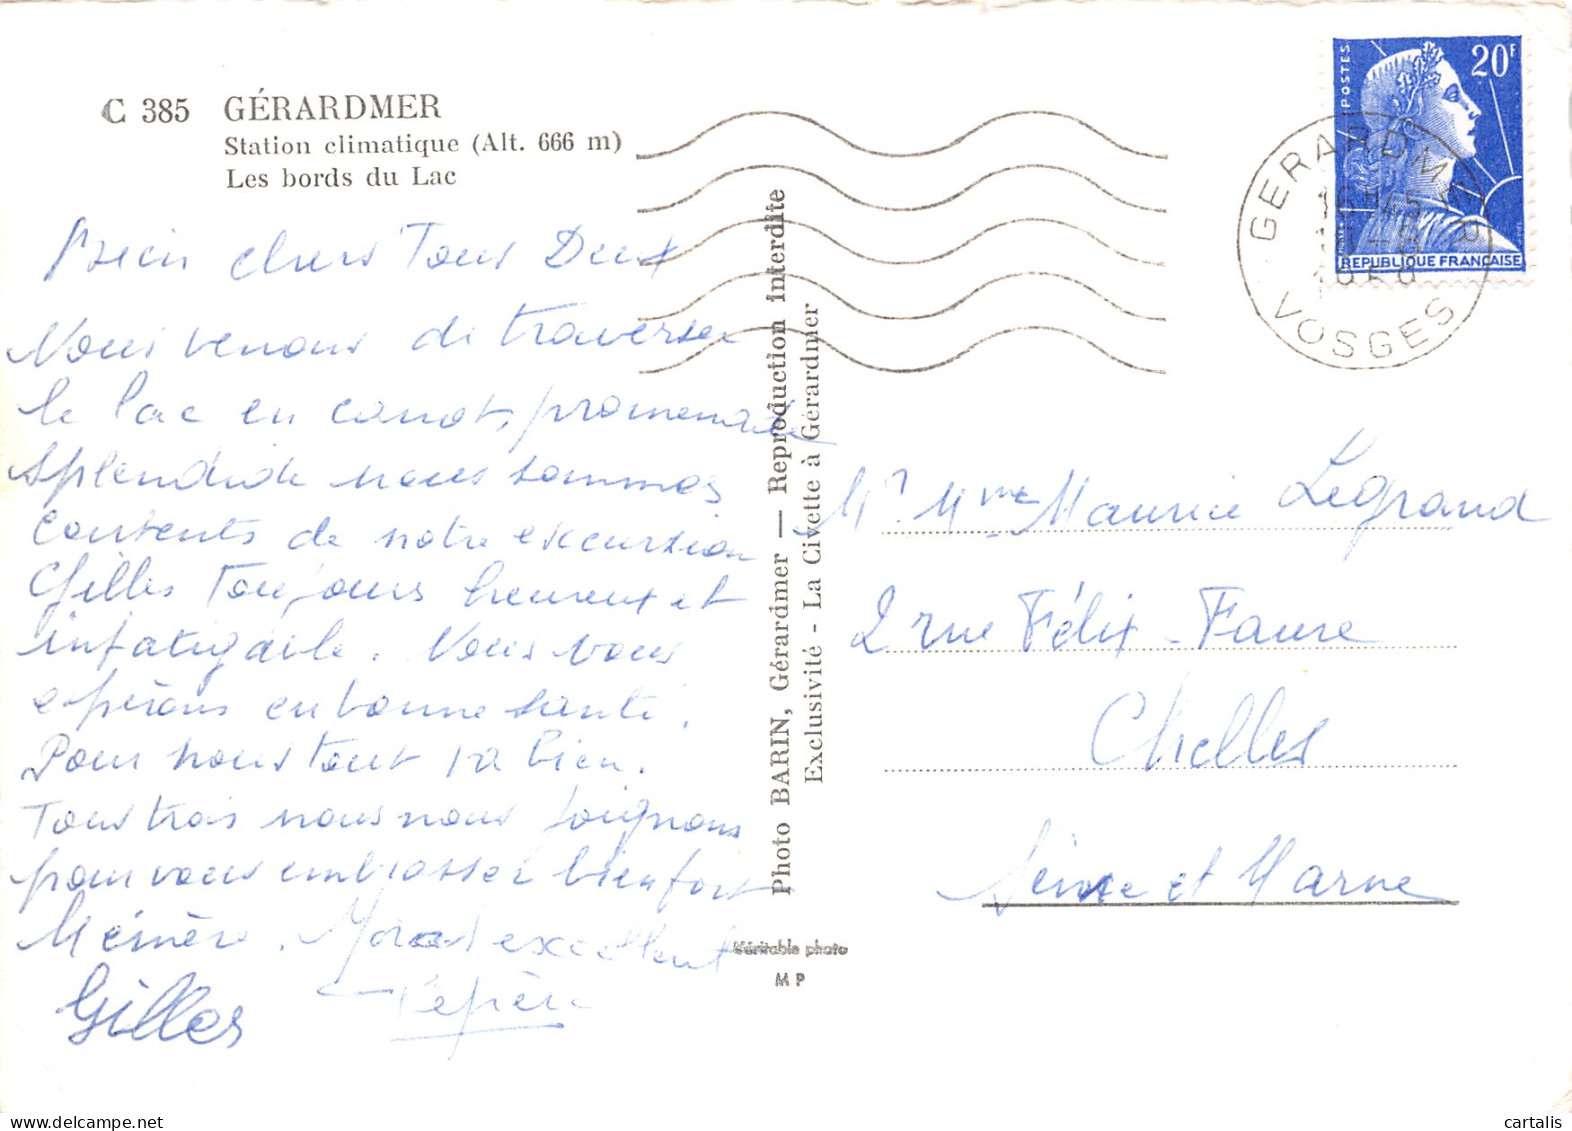 C 385 GÉRARDMER
Station climatique (Alt. 666 m)
Les bords du Lac
Bien chers Tous Deux
Nous venons de traverser
le lac en canot, promenade
splendide nous sommes
contents de notre excursion
Gilles toujours heureux et
infatigable. Nous vous
espérons en bonne santé.
Pour nous tout va bien.
Tous trois nous nous joignons
pour vous embrasser bien fort
Mémère. Moral excellent
Pépère
Gilles
Photo BARIN, Gérardmer — Reproduction interdite
Exclusivité - La Civette à Gérardmer
Véritable photo
M P
POSTES
20F
REPUBLIQUE FRANÇAISE
GERARDMER
VOSGES
Mr. Mme Maurice Legrand
2 rue Félix-Faure
Chelles
Seine et Marne
cartalis